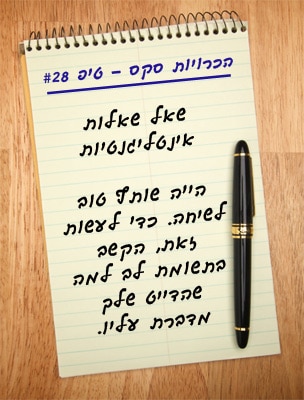 הכרויות סקס – טיפ 28#
שאל שאלות
אינטליגנטיות
הייה שותף טוב
לשיחה. כדי לעשות
זאת, הקשב
בתשומת לב למה
שהדייט שלך
מדברת עליו.